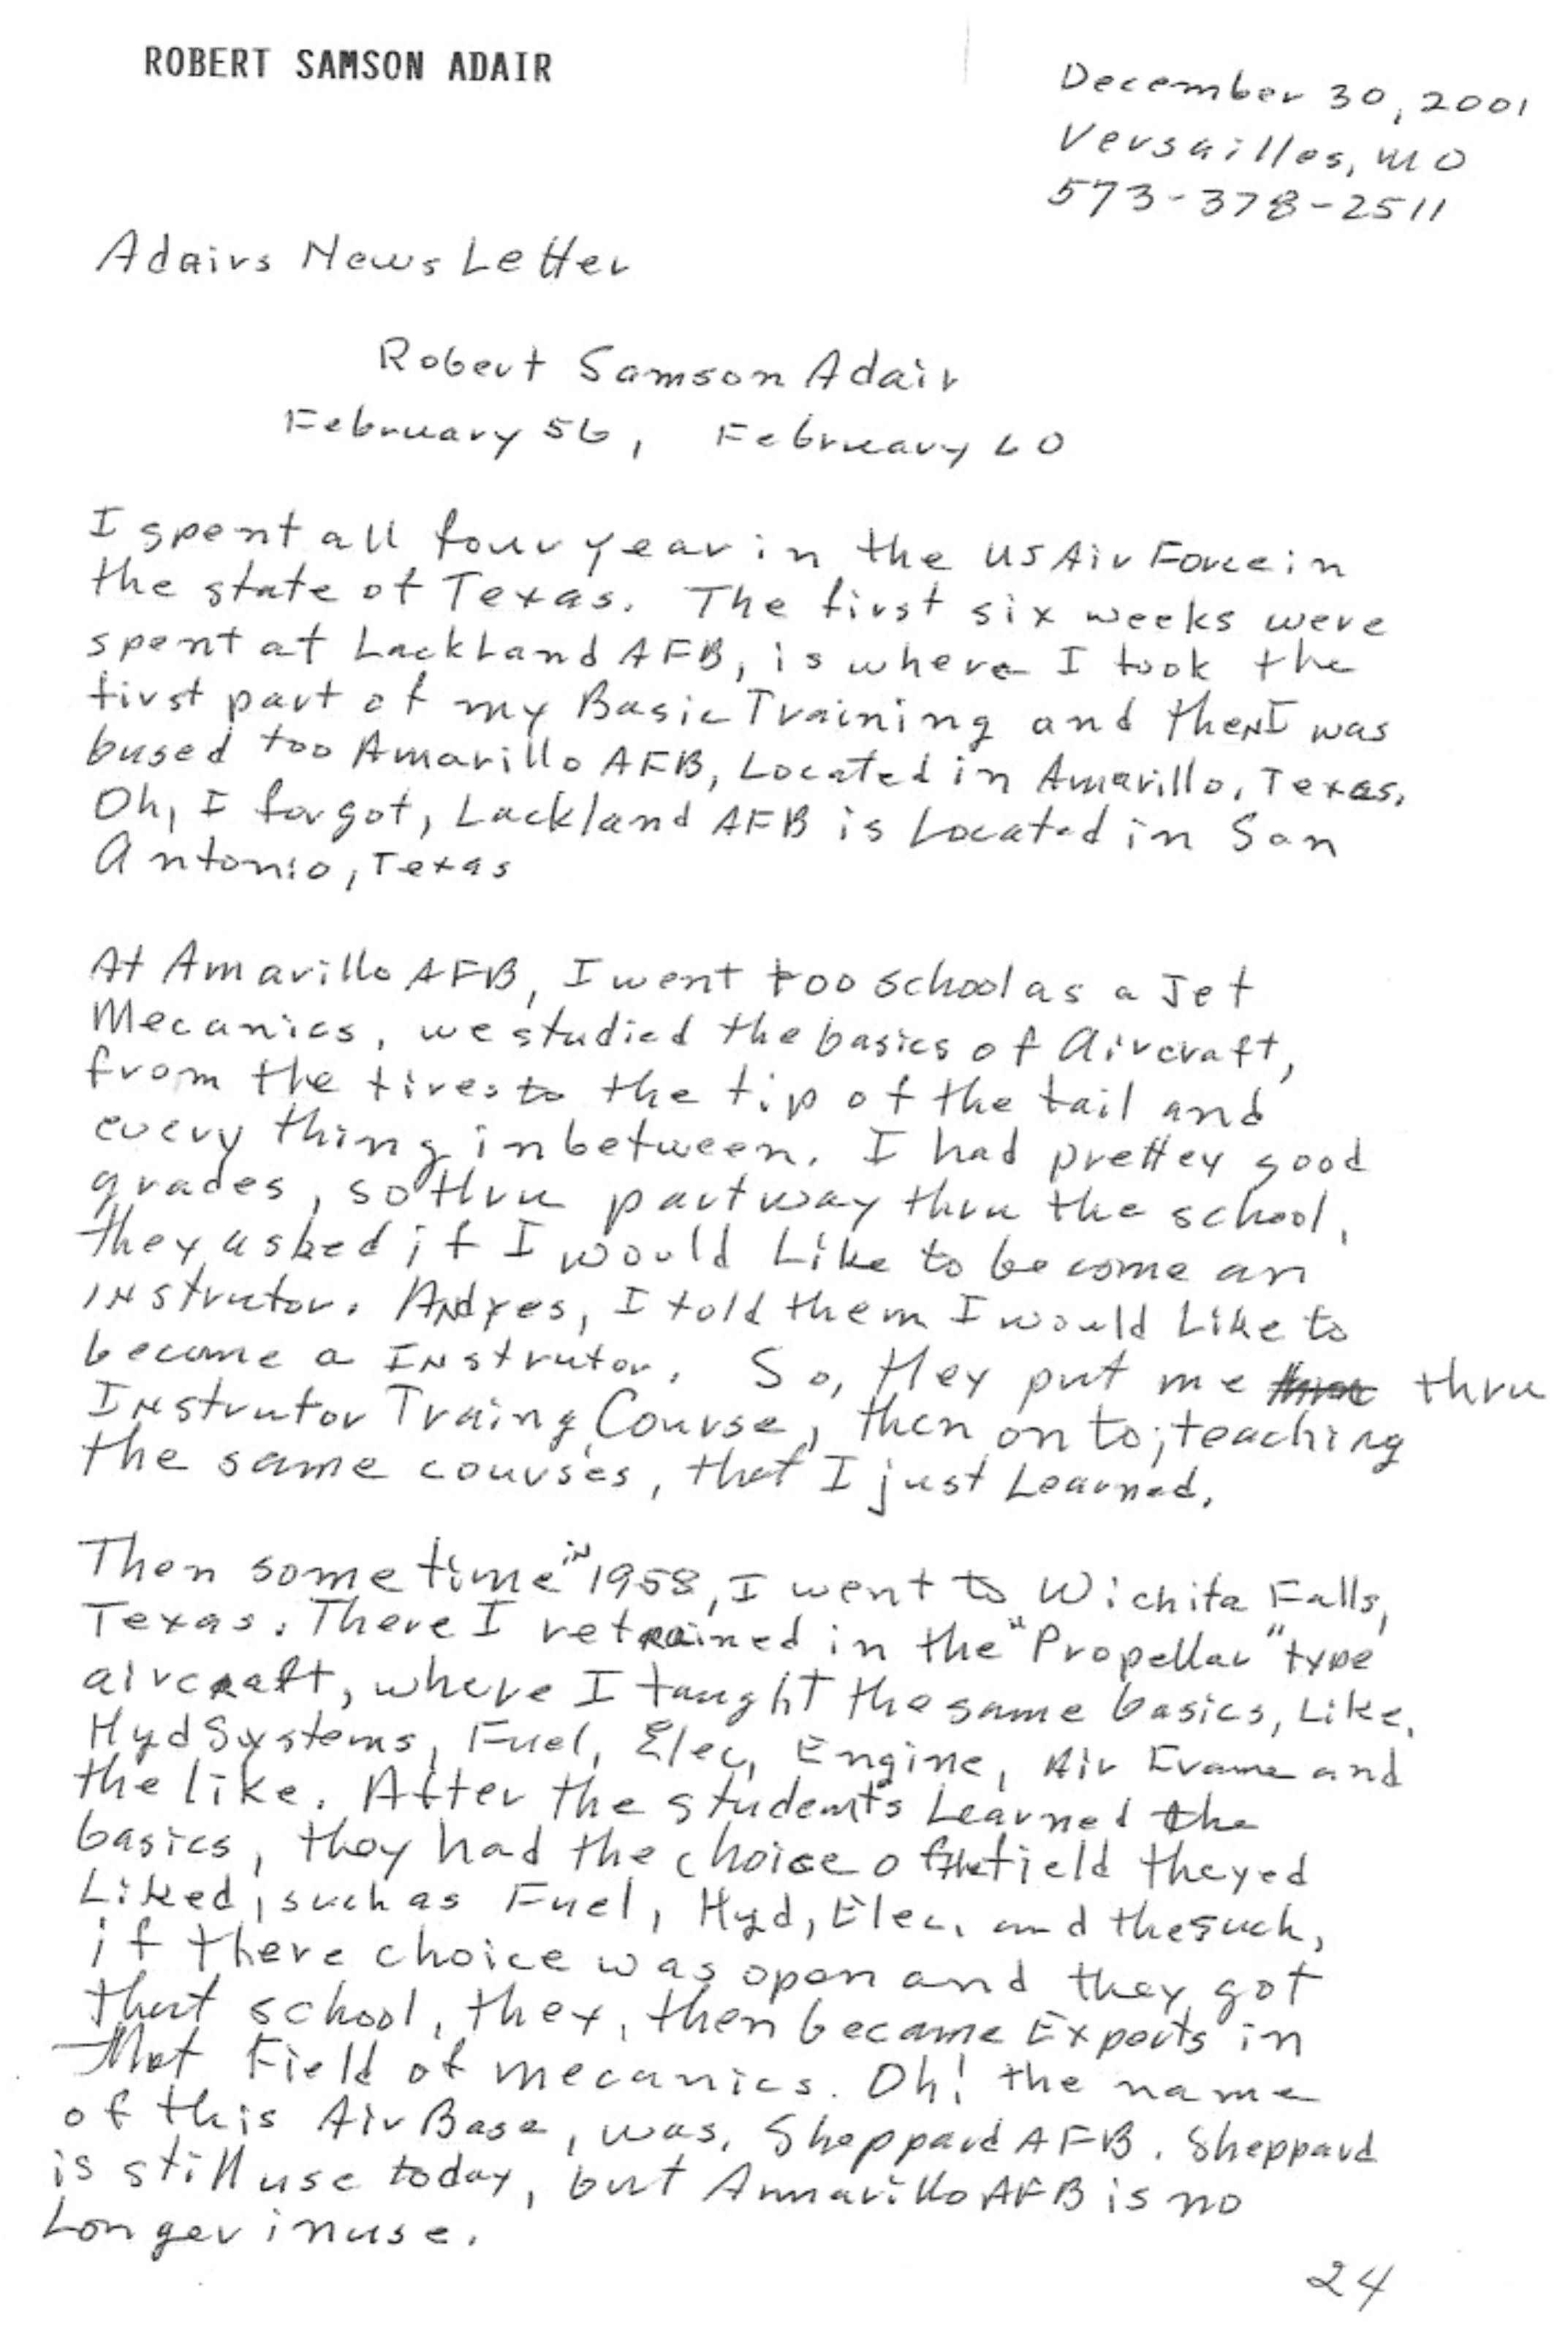 ROBERT SAMSON ADAIR
December 30, 2001
Versailles, MO
573-378-2511
Adairs News Letter
Robert Samson Adair
February 56, February 60
I spent all four year in the US Air Force in
the state of Texas. The first six weeks were
spent at Lackland AFB, is where I took the
first part of my Basic Training and then I was
bused too Amarillo AFB, Located in Amarillo, Texas.
Oh, I forgot, Lackland AFB is Located in San
Antonio, Texas
At Amarillo AFB, I went too school as a Jet
Mecanics, we studied the basics of Aircraft,
from the tires to the tip of the tail and
every thing inbetween. I had prettey good
grades, so thru partway thru the school,
they asked if I would Like to become an
instrutor. And yes, I told them I would Like to
become a Instrutor. So, they put me thru
Instrutor Traing Course, then on to; teaching
the same courses, that I just Learned.
Then some time in 1958, I went to Wichita Falls,
Texas. There I retrained in the "Propellar" type
aircraft, where I taught the same basics, Like,
Hyd Systems, Fuel, Elec, Engine, Air Frame and
the like. After the students Learned the
basics, they had the choice of the field theyed
Liked, such as Fuel, Hyd, Elec, and the such,
if there choice was open and they got
that school, they, then became Experts in
that Field of mecanics. Oh! the name
of this Air Base, was, Sheppard AFB. Sheppard
is still use today, but Ammarillo AFB is no
Longer in use.
24